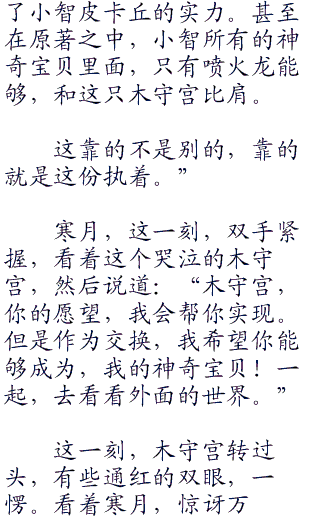 了小智皮卡丘的实力。甚至
在原著之中，小智所有的神
奇宝贝里面，只有喷火龙能
够，和这只木守宫比肩。
这靠的不是别的，靠的
就是这份执着。”
寒月，这一刻，双手紧
握，看着这个哭泣的木守
宫，然后说道：“木守宫，
你的愿望，我会帮你实现。
但是作为交换，我希望你能
够成为，我的神奇宝贝！一
起，去看看外面的世界。”
这一刻，木守宫转过
头，有些通红的双眼，一
愣。看着寒月，惊讶万